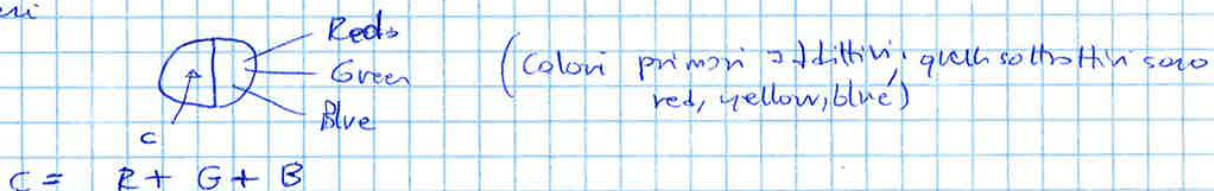 Red
Green
Blue
C
(Colori primari additivi, quelli sottrattivi sono
red, yellow, blue)
C = R + G + B